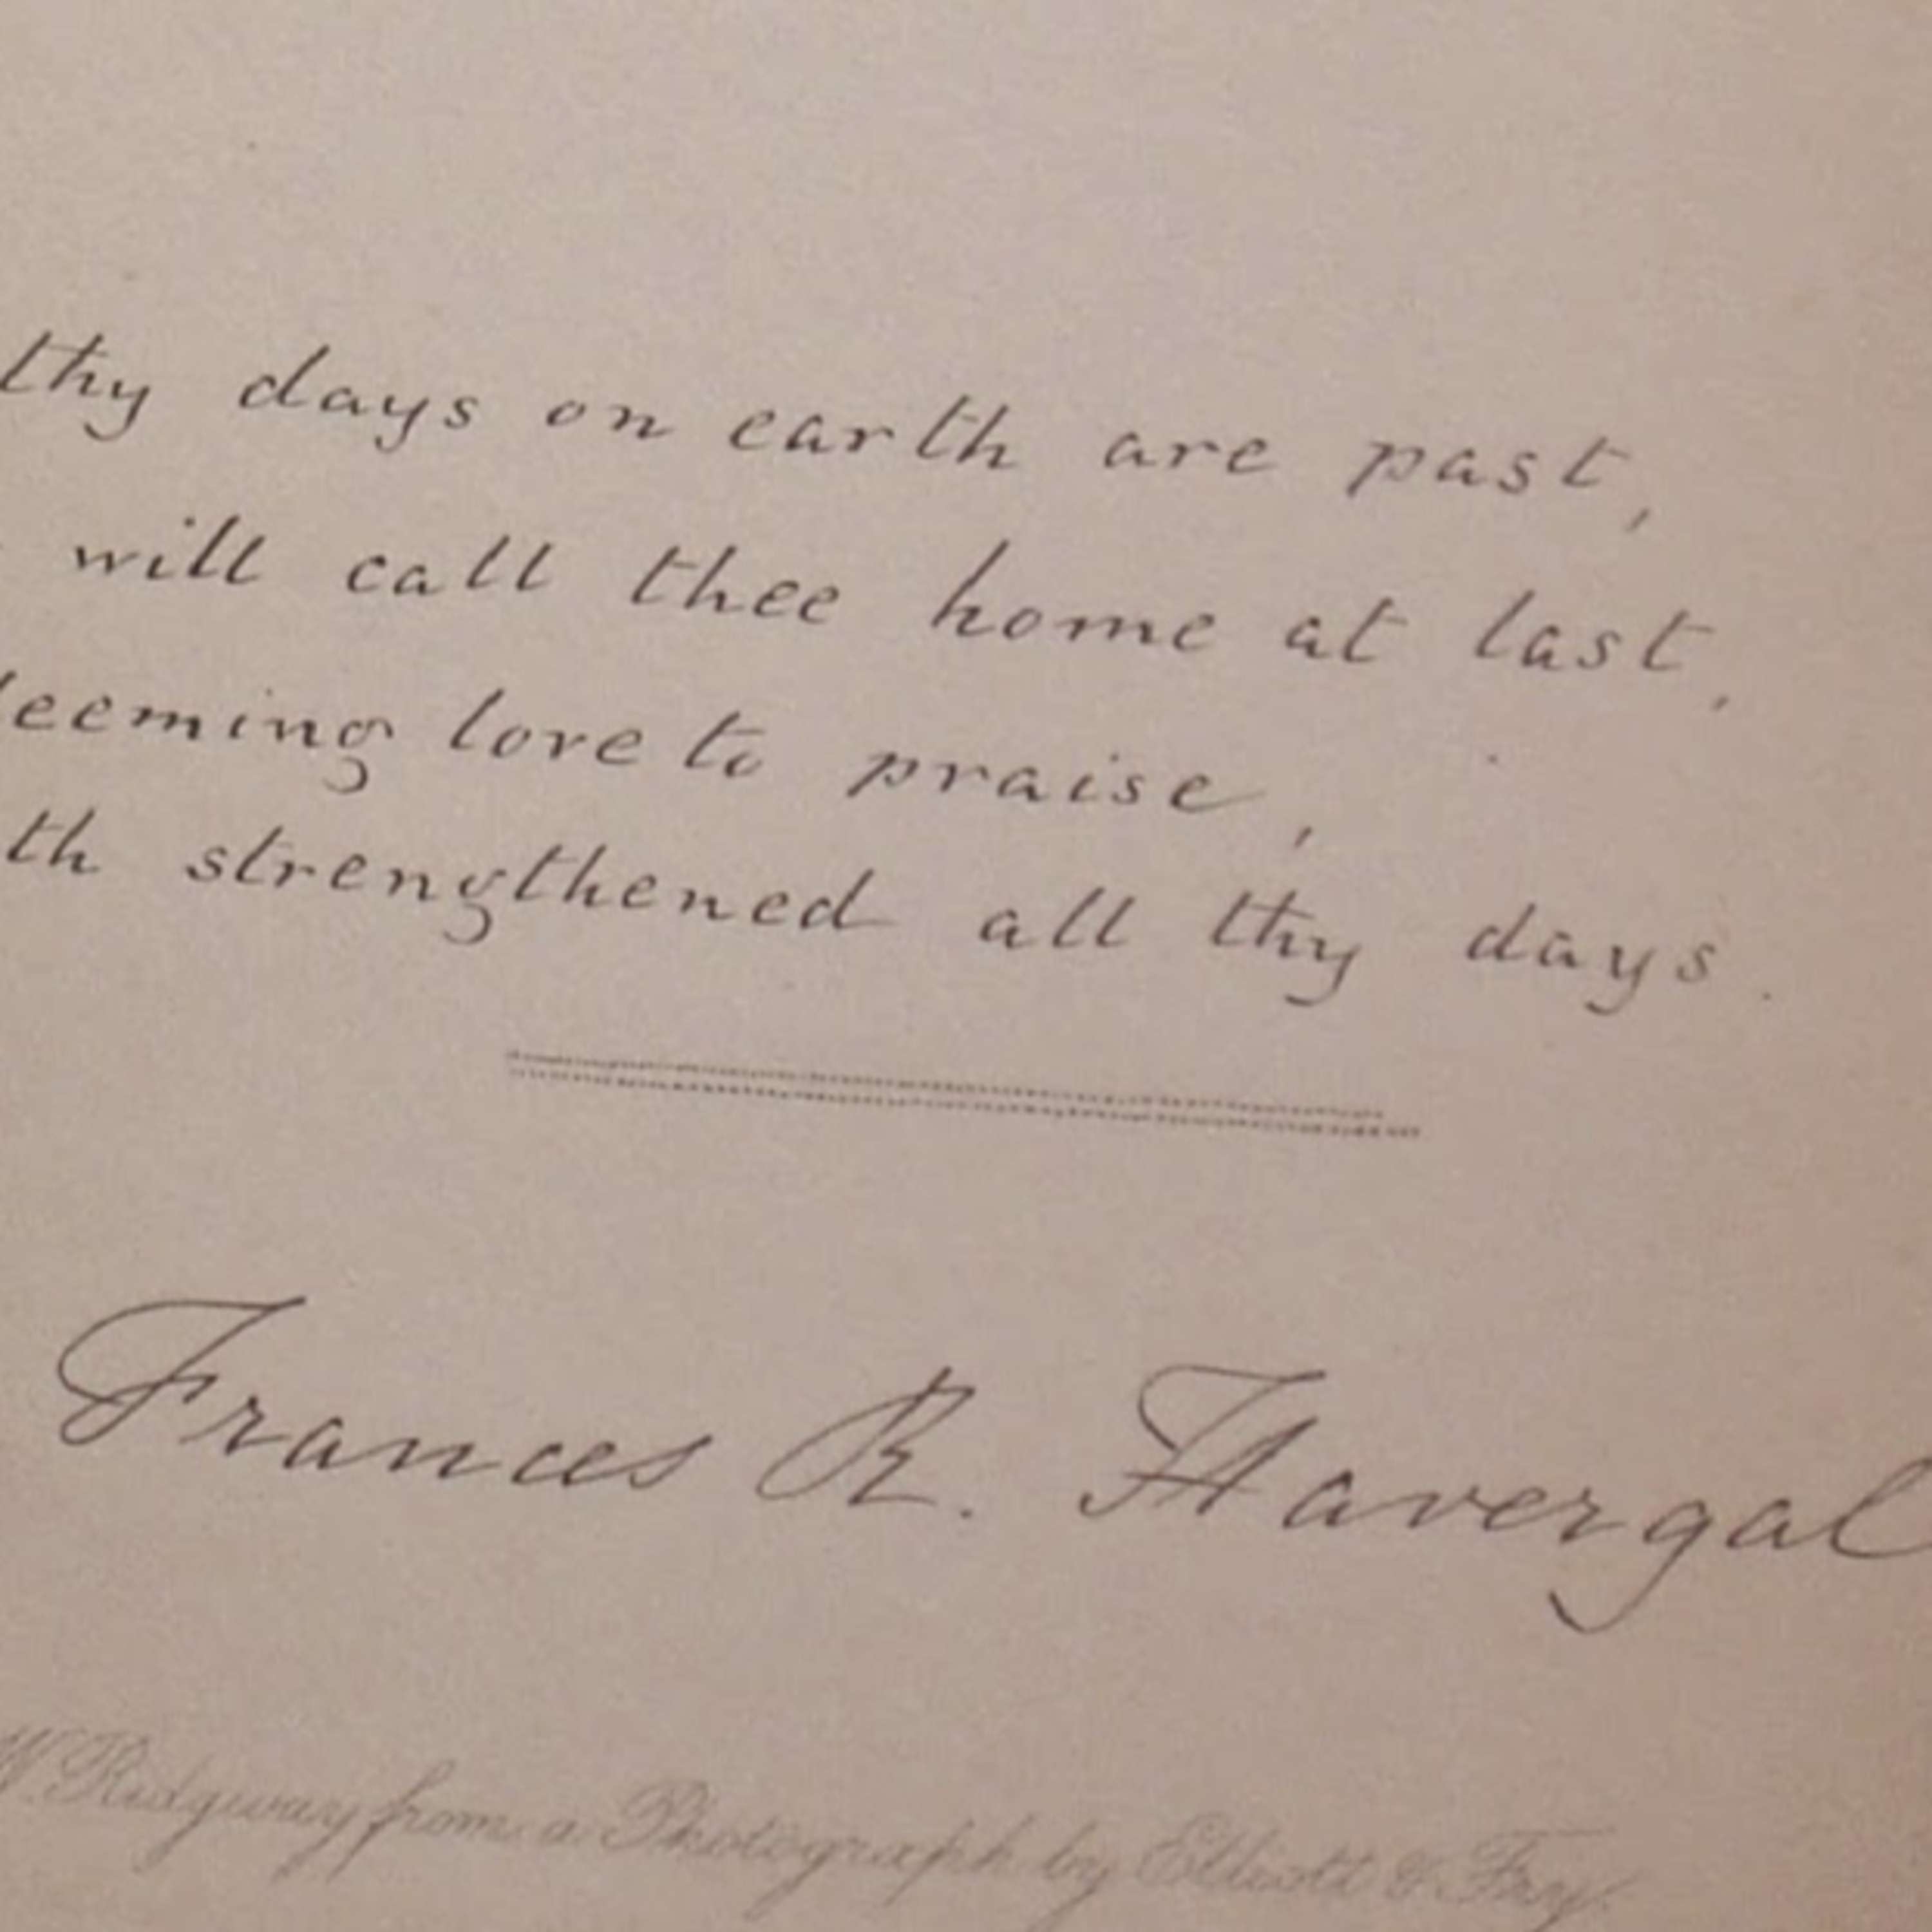 thy days on earth are past,
will call thee home at last,
deeming love to praise,
th strengthened all thy days.
Frances R. Havergal
W. Ridgway from a Photograph by Elliott & Fry.